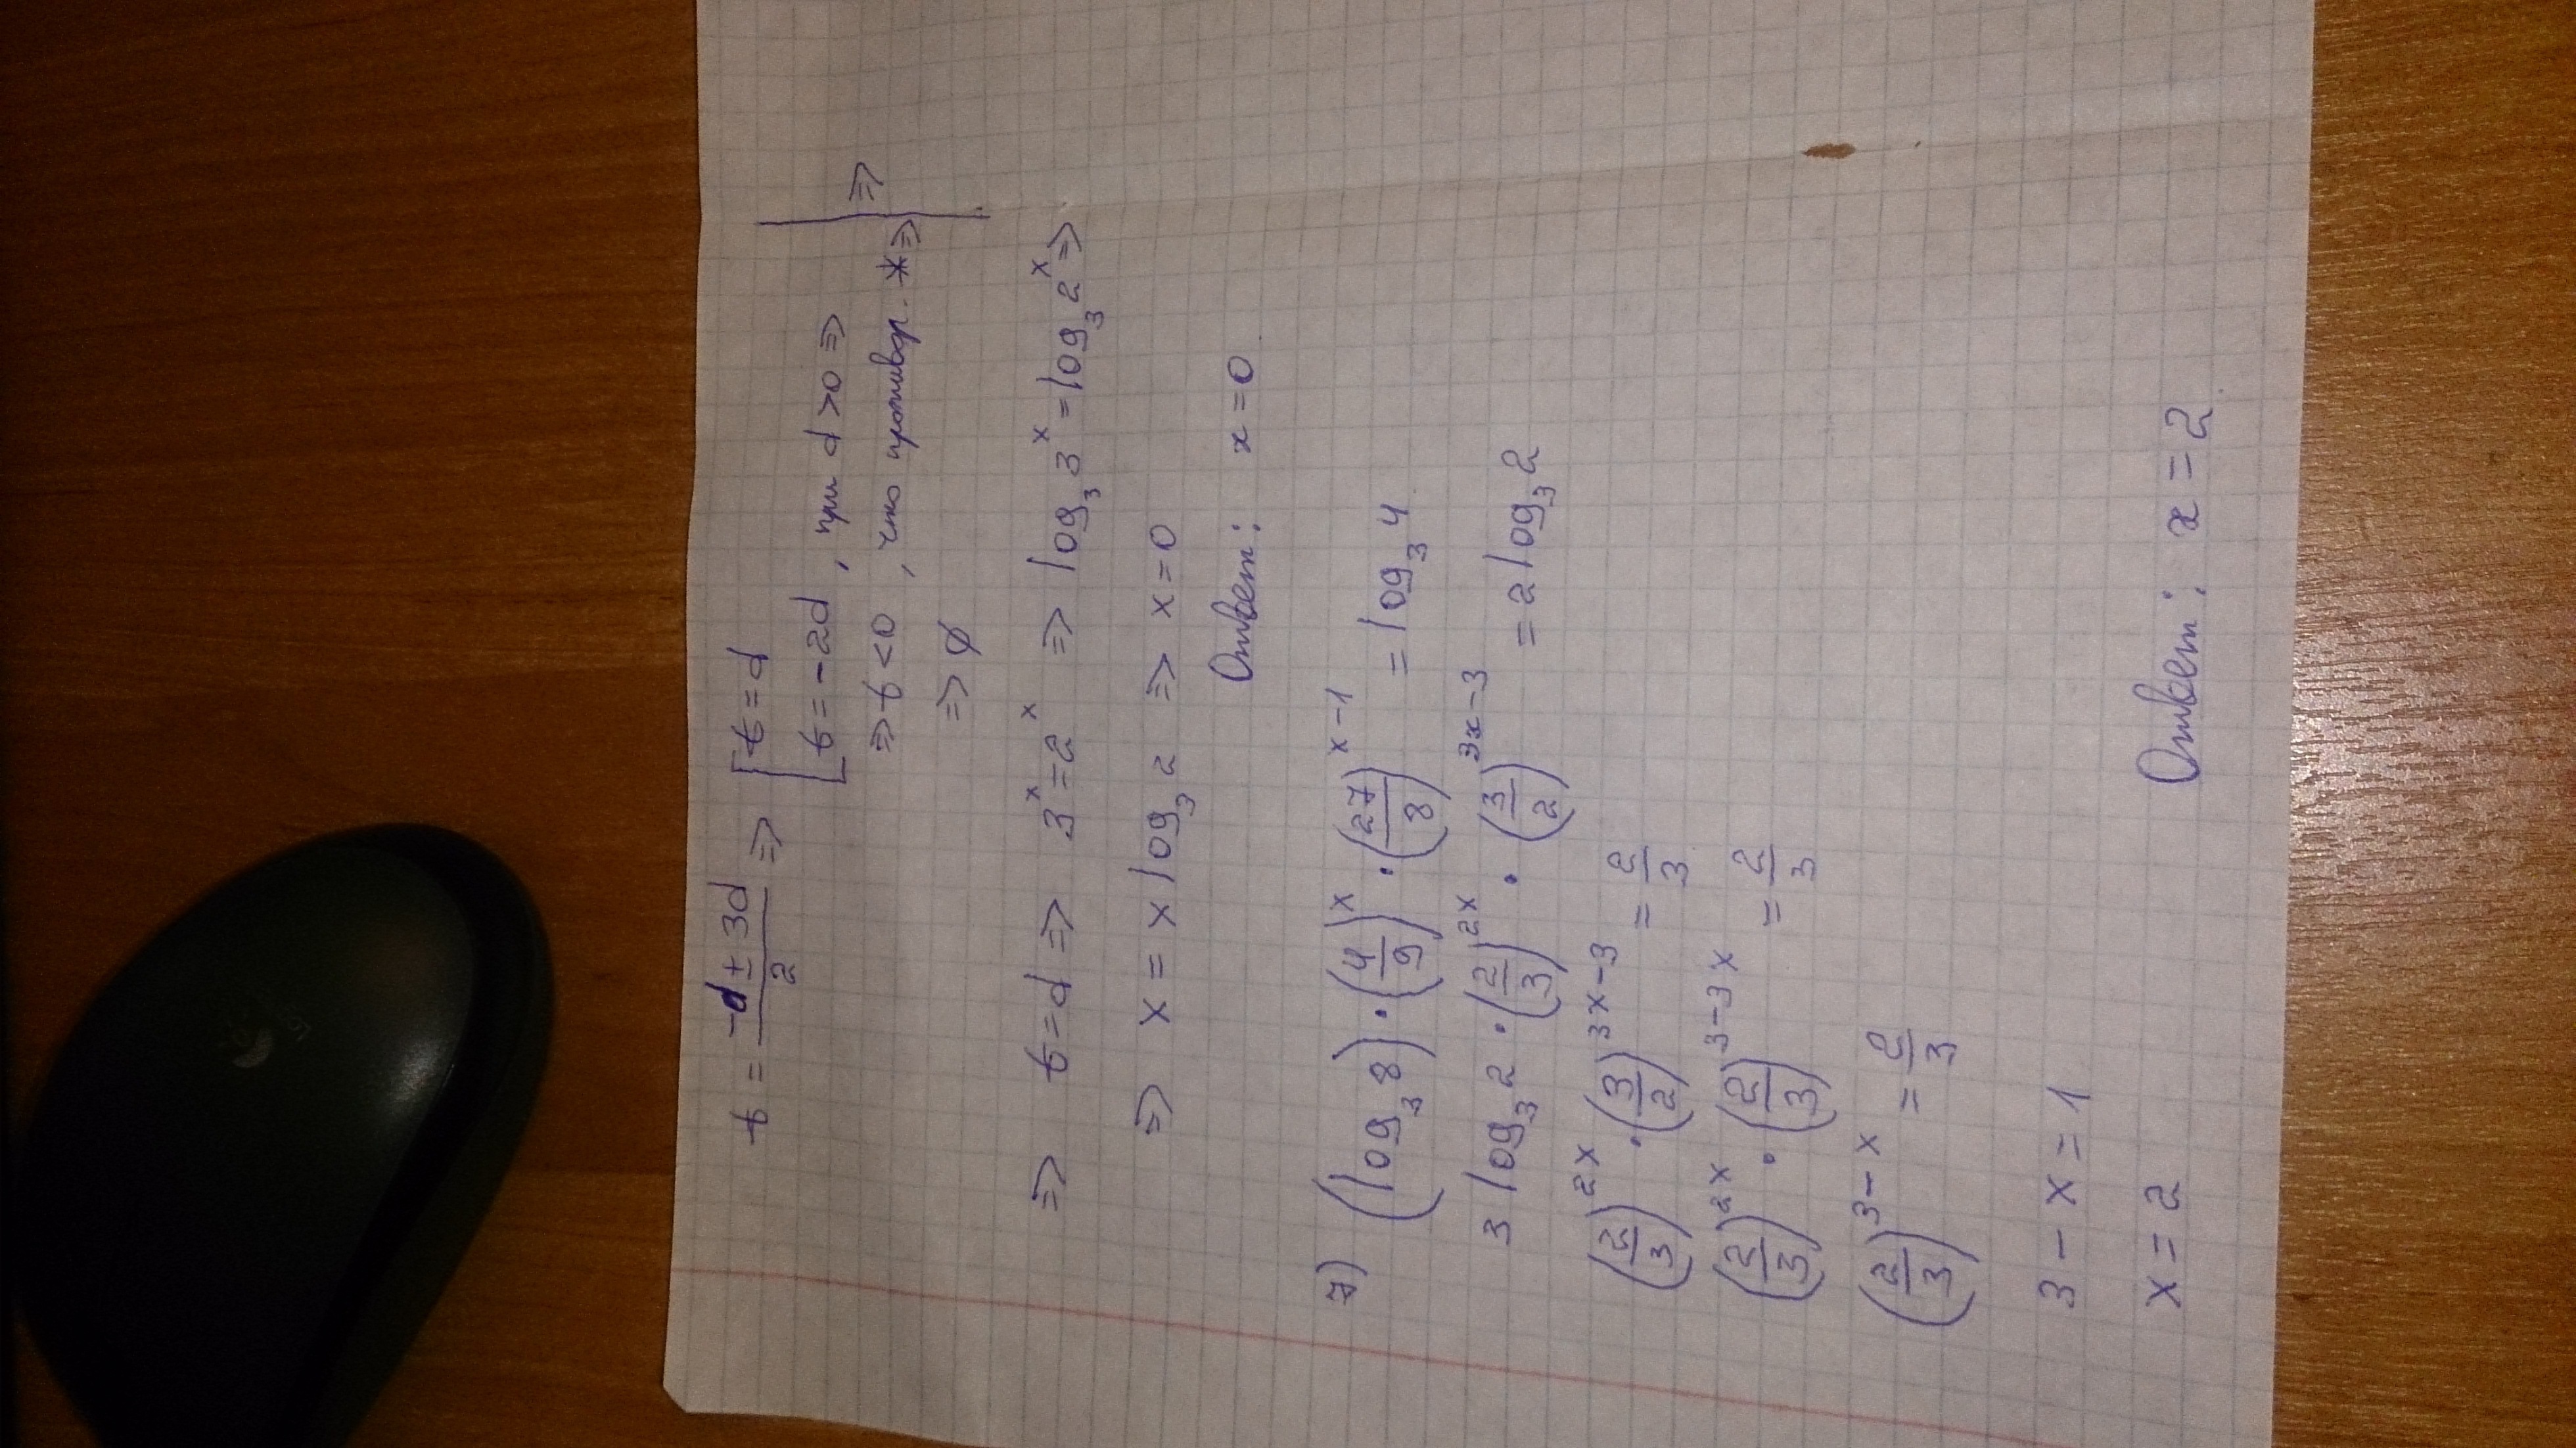 t = (-d ± 3d)/2 => [ t = d
[ t = -2d, при d>0 =>
=> t<0, что противор. * => | =>
=> ∅
=> t = d => 3^x = 2^x => log_3 3^x = log_3 2^x =>
=> x = x log_3 2 => x = 0
Ответ: x = 0
7) (log_3 8) · (4/9)^x · (27/8)^(x-1) = log_3 4
3 log_3 2 · (2/3)^(2x) · (3/2)^(3x-3) = 2 log_3 2
(2/3)^(2x) · (3/2)^(3x-3) = 2/3
(2/3)^(2x) · (2/3)^(3-3x) = 2/3
(2/3)^(3-x) = 2/3
3 - x = 1
x = 2
Ответ: x = 2